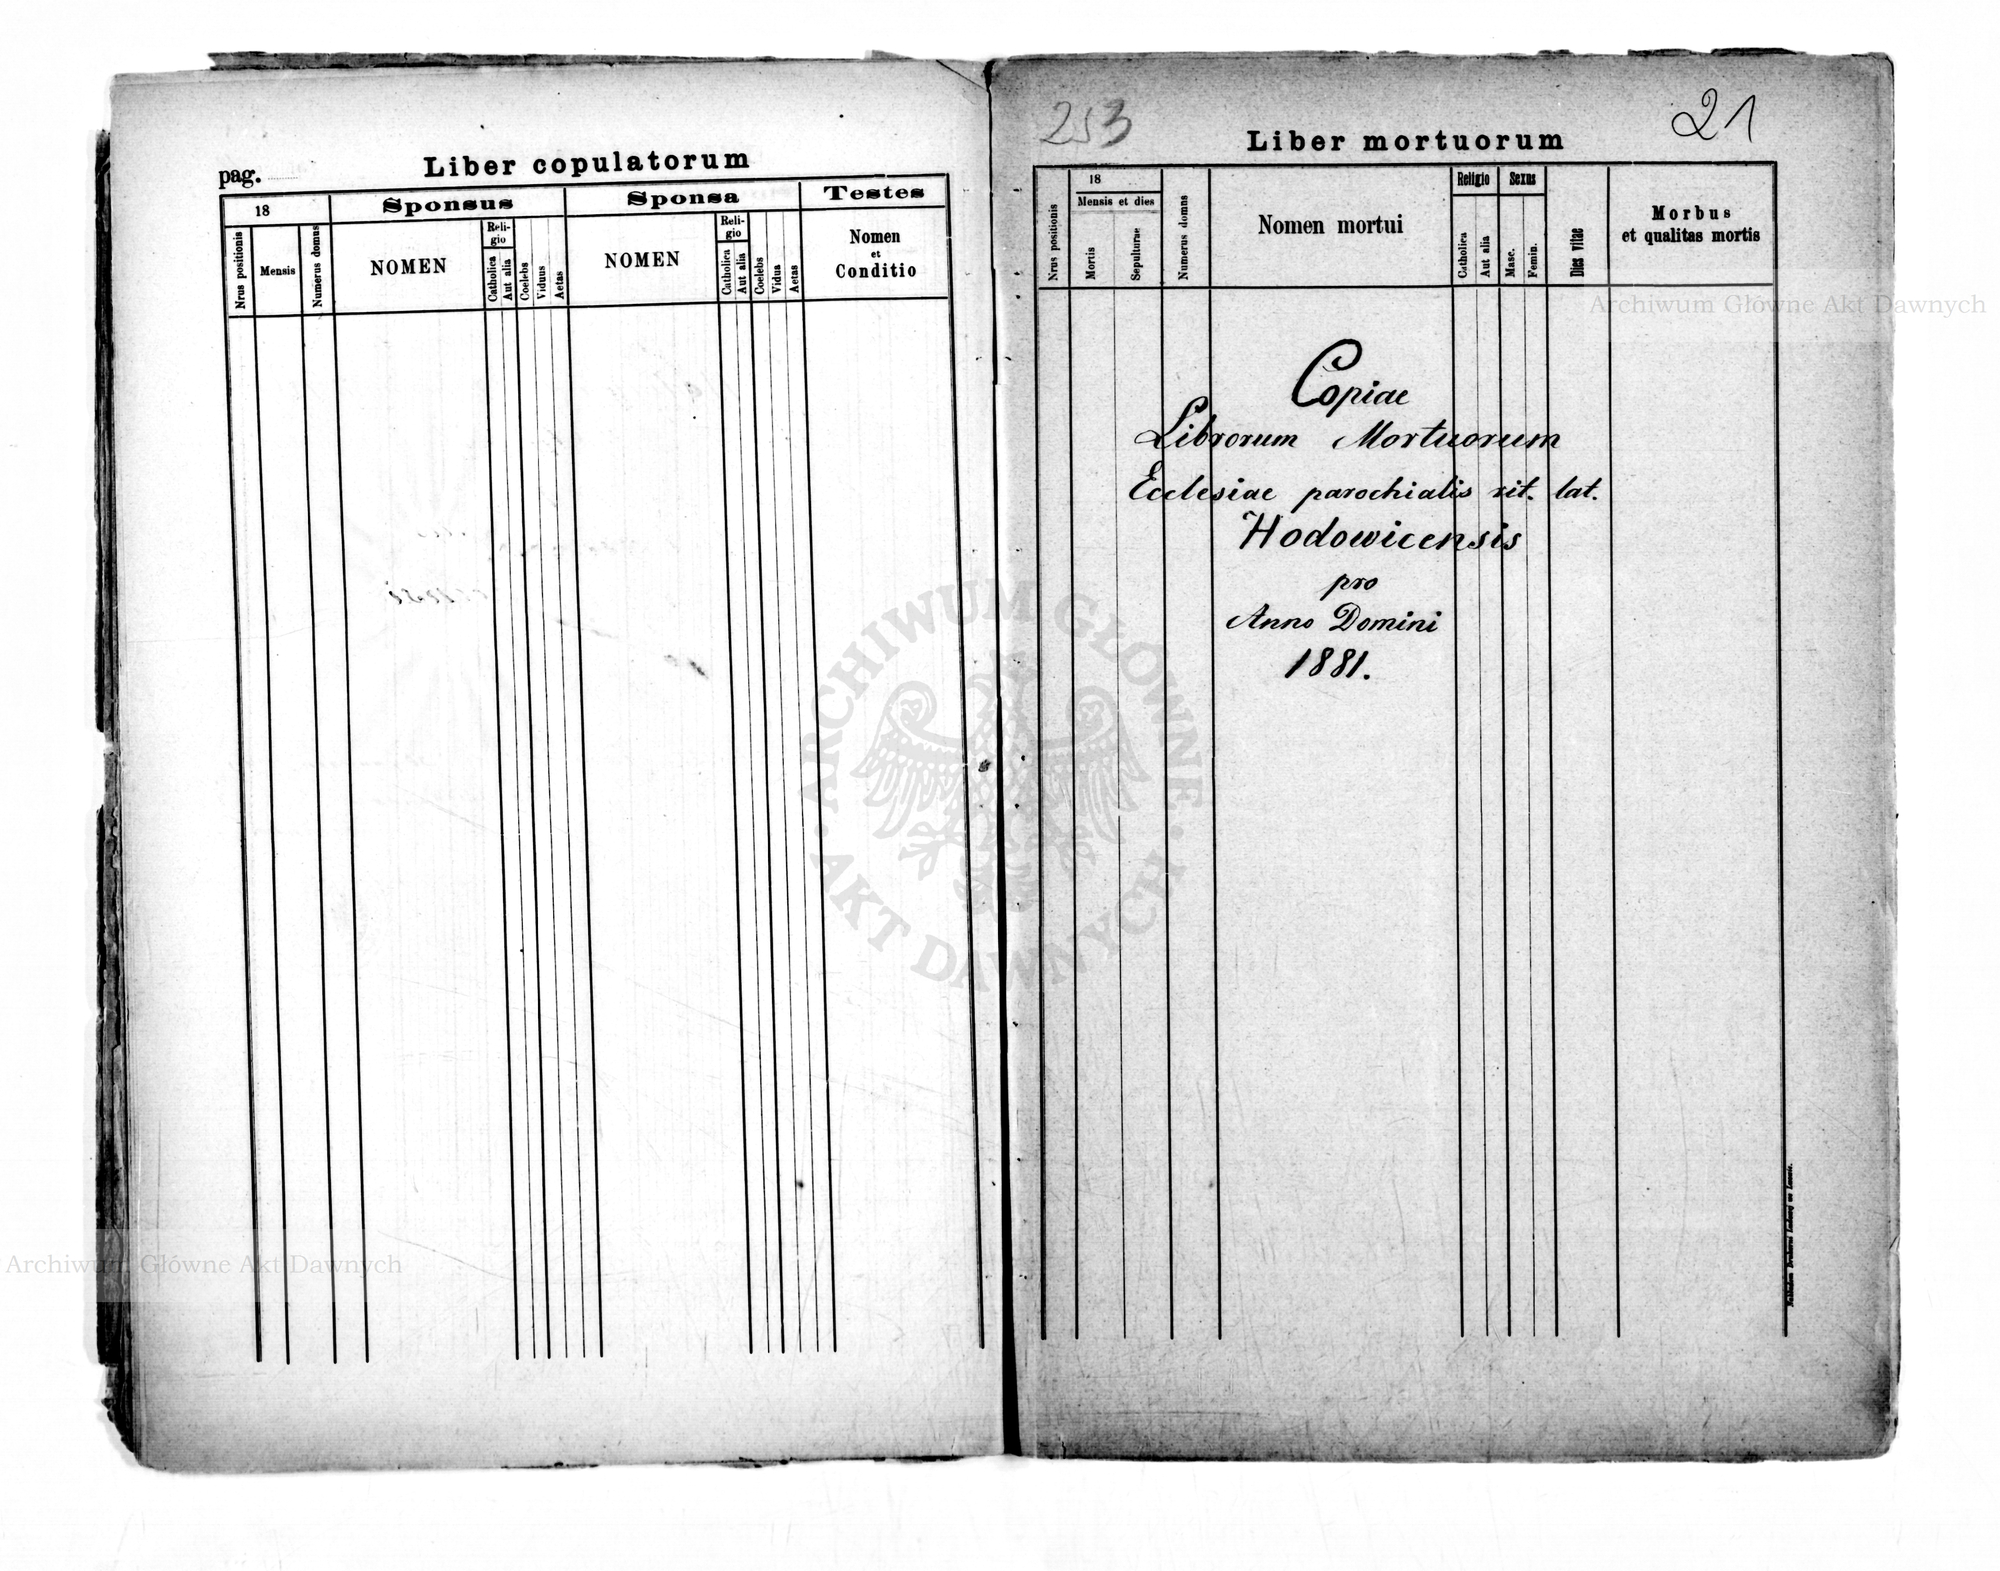 pag.
Liber copulatorum
18
Sponsus
Sponsa
Testes
Nrus positionis
Mensis
Numerus domus
NOMEN
Reli-
gio
Catholica
Aut alia
Coelebs
Viduus
Aetas
NOMEN
Reli-
gio
Catholica
Aut alia
Coelebs
Vidua
Aetas
Nomen
et
Conditio
253
21
Liber mortuorum
Nrus positionis
18
Mensis et dies
Mortis
Sepulturae
Numerus domus
Nomen mortui
Religio
Catholica
Aut alia
Sexus
Masc.
Femin.
Dies vitae
Morbus
et qualitas mortis
Copiae
Librorum Mortuorum
Ecclesiae parochialis rit. lat.
Hodowicensis
pro
Anno Domini
1881.
Nakładem Drukarni Ludowej we Lwowie.
Archiwum Główne Akt Dawnych
Archiwum Główne Akt Dawnych
ARCHIWUM GŁÓWNE
AKT DAWNYCH